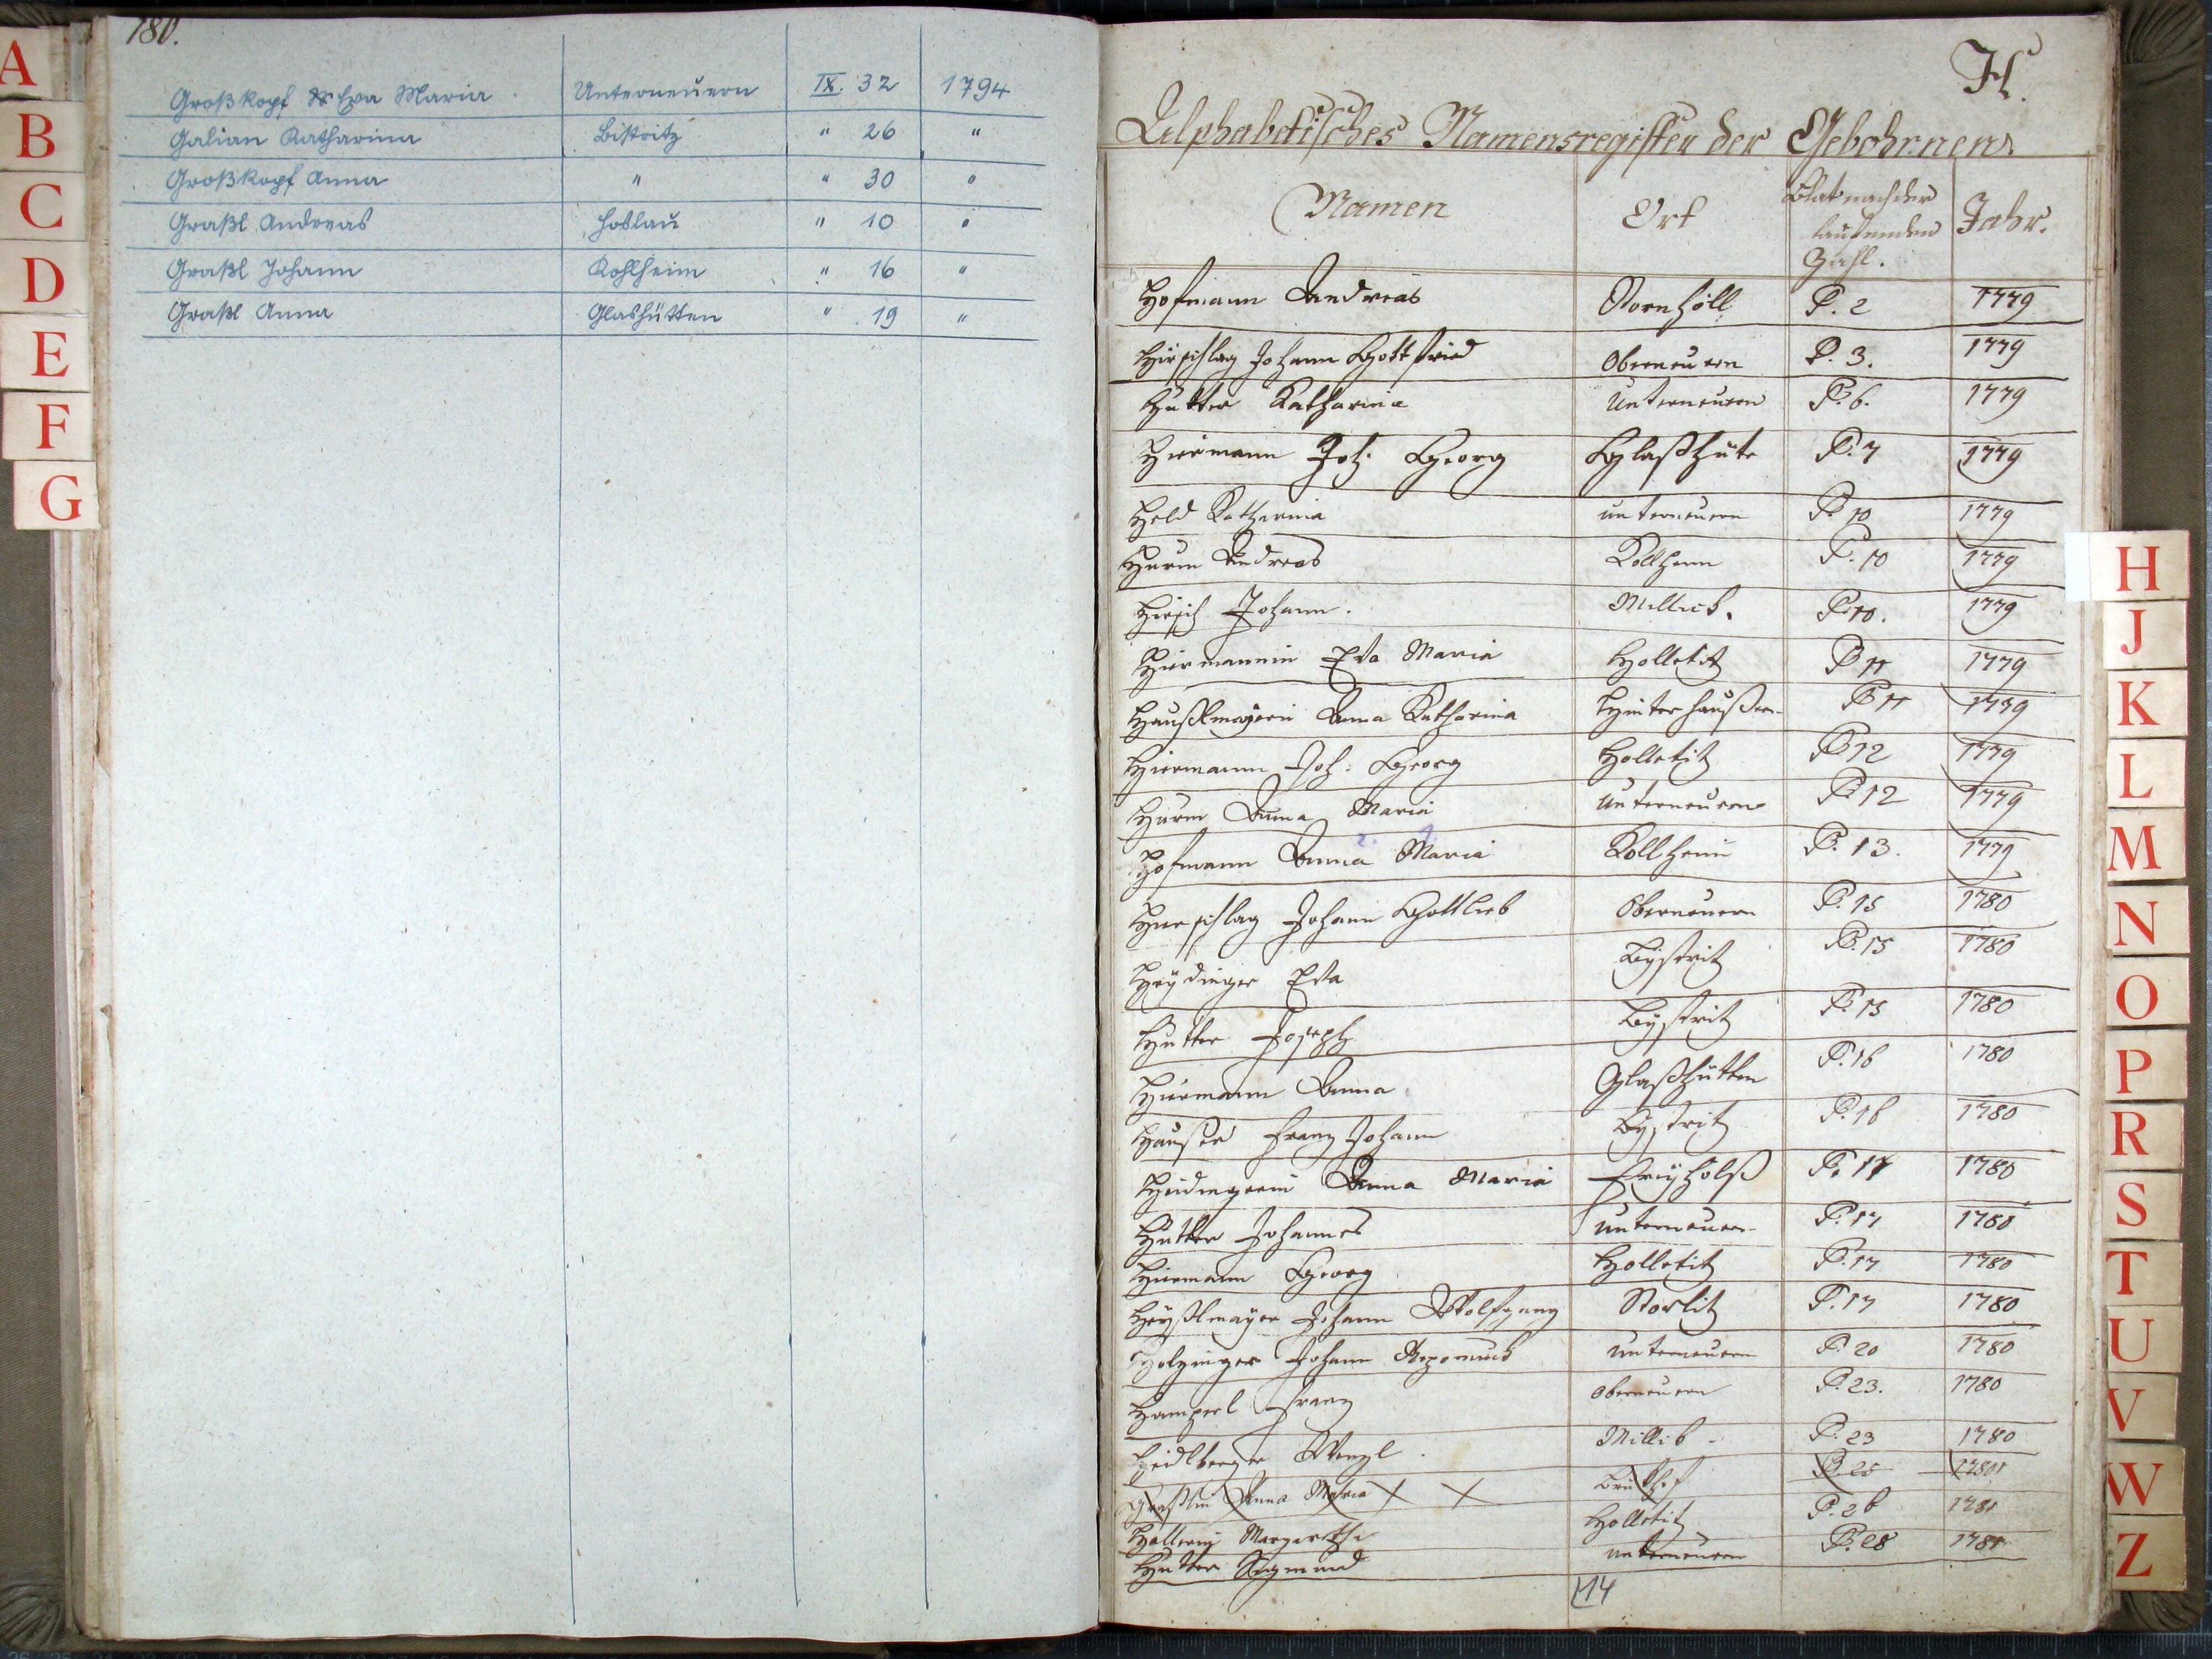 180.
Großkopf Eva Maria Unterneuern IX. 32 1794
Galian Katharina Bistritz " 26 "
Großkopf Anna " " 30 "
Graßl Andreas Hoslau " 10 "
Graßl Johann Kohlheim " 16 "
Graßl Anna Glashütten " 19 "
A
B
C
D
E
F
G
H.
Alphabetisches Namensregister der Gebohrnen
Namen Ort Blat nach der laufenden Zahl. Jahr.
Hofmann Andreas P. 2 1779
Hirschlag Johann Gottfried Oberneuern P. 3. 1779
Hutter Katharina Unterneuern P. 6. 1779
Hiermann Joh: Georg Glaßhüte P. 7 1779
Held Katharina unterneuern P. 10 1779
Hurm Andreas Kollheim P. 10 1779
Hirsch Johann. Millick. P. 10. 1779
Hiermannin Eva Maria Holletitz P. 11 1779
Haußlmajerin Anna Katharina Hinterhaußern P. 11 1779
Hiermann Joh: Georg Holletitz P. 12 1779
Hurm Anna Maria Unterneuern P. 12 1779
Hofmann Anna Maria Kollheim P. 13. 1779
Hirschlag Johann Gottlieb Oberneuern P. 15 1780
Heydinger Eva Bystritz P. 15 1780
Hutter Joseph Bystritz P. 15 1780
Hiermann Anna Glaßhütten P. 16 1780
Hauser Franz Johann Bystritz P. 16 1780
Heidingerin Anna Maria Freyhölß P. 17 1780
Hutter Johannes Unterneuern P. 17 1780
Hiermann Georg Holletitz P. 17 1780
Heyßlmayer Johann Wolfgang Storlitz P. 17 1780
Holzinger Johann Nepomuck unterneuern P. 20 1780
Hamperl Franz oberneuern P. 23. 1780
Heidlberger Wenzl Millik P. 23 1780
Graßlin Anna Maria X X P. 25 1781
Hallerin Margaretha Holletitz P. 26 1781
Hutter Sigmund unterneuern P. 28 1781
14
H
J
K
L
M
N
O
P
R
S
T
U
V
W
Z